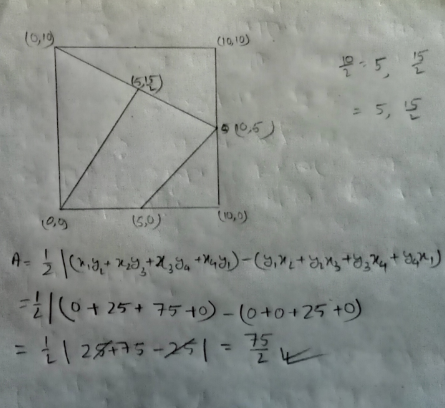 (0,10) (10,10)
10/2 = 5, 15/2
(5,15/2)
= 5, 15/2
(10,5)
(0,0) (5,0) (10,0)
A = 1/2 |(x₁y₂ + x₂y₃ + x₃y₄ + x₄y₁) - (y₁x₂ + y₂x₃ + y₃x₄ + y₄x₁)
= 1/2 |(0 + 25 + 75 + 0) - (0+0+25+0)
= 1/2 | 25+75 - 25 | = 75/2